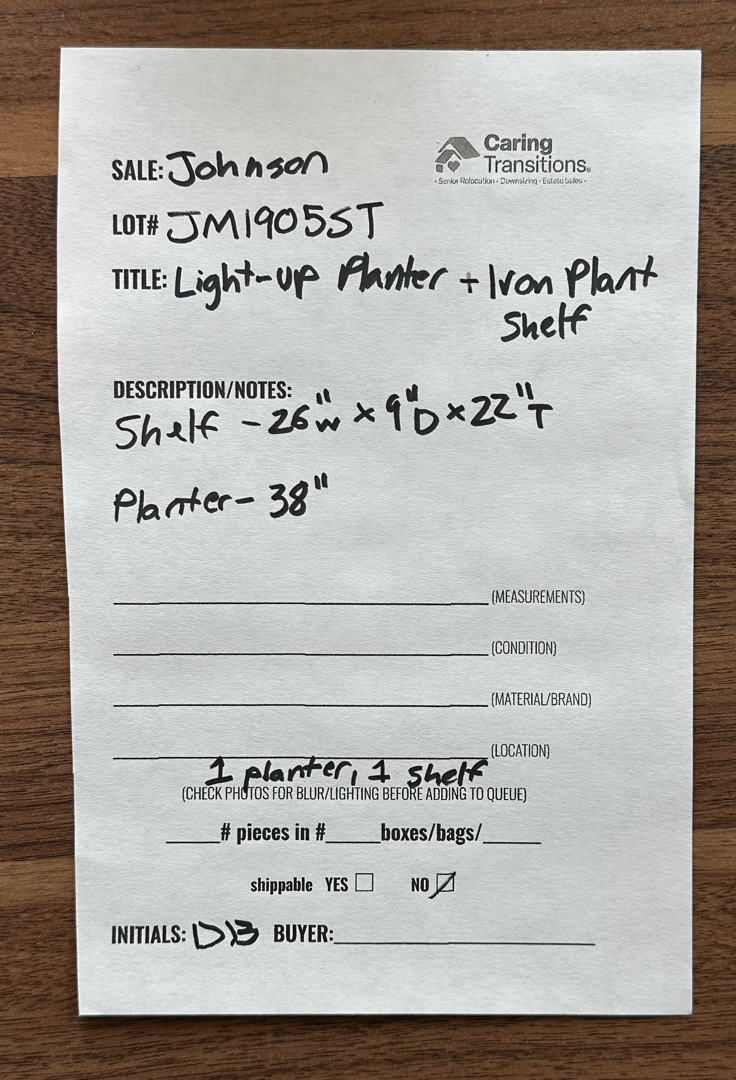 Caring
Transitions®
- Senior Relocation - Downsizing - Estate Sales -
SALE: Johnson
LOT# JM1905ST
TITLE: Light-up Planter + Iron Plant
Shelf
DESCRIPTION/NOTES:
Shelf - 26"W x 9"D x 22"T
Planter - 38"
(MEASUREMENTS)
(CONDITION)
(MATERIAL/BRAND)
(LOCATION)
1 planter, 1 shelf
(CHECK PHOTOS FOR BLUR/LIGHTING BEFORE ADDING TO QUEUE)
_____# pieces in #_____boxes/bags/_____
shippable YES ☐ NO ☑
INITIALS: DB BUYER:_____